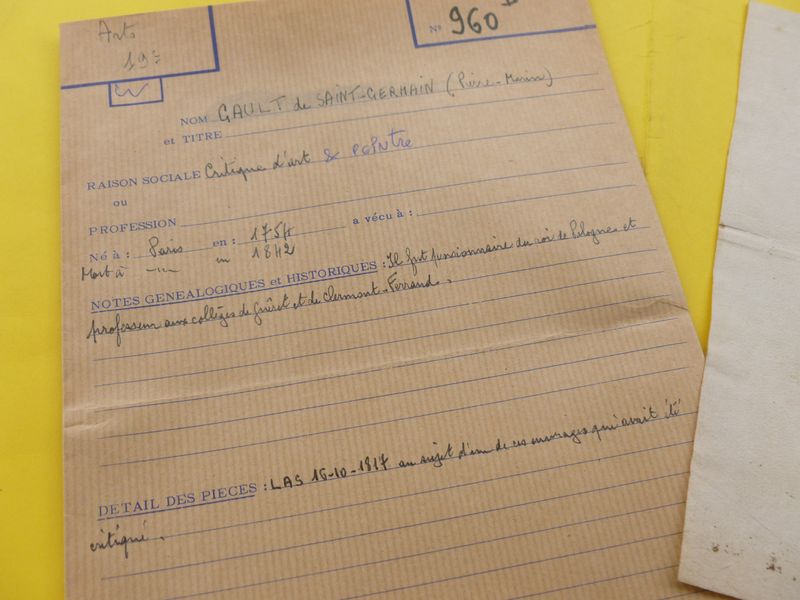 Arts
19e
N° 960
NOM GAULT de SAINT-GERMAIN (Pierre-Marin)
et TITRE
RAISON SOCIALE Critique d'art & Peintre
ou
PROFESSION
Né à : Paris en : 1754 a vécu à :
Mort à en 1842
NOTES GENEALOGIQUES et HISTORIQUES : Il fut pensionnaire du roi de Pologne et
professeur aux collèges de Guéret et de Clermont-Ferrand.
DETAIL DES PIECES : LAS 16-10-1817 au sujet d'un de ces ouvrages qui avait été
critiqué.